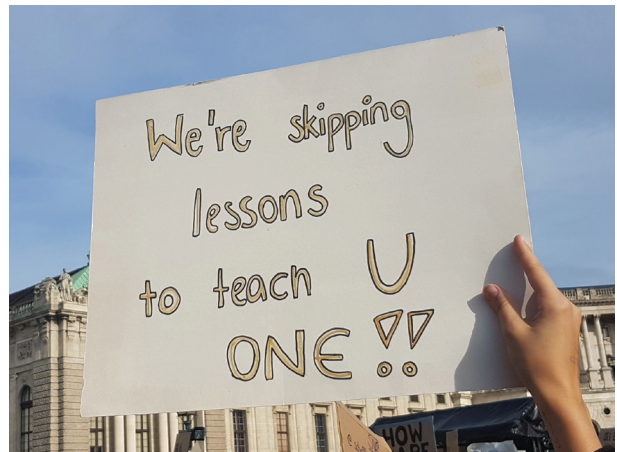 We're skipping
lessons
to teach U
ONE!!
HOW